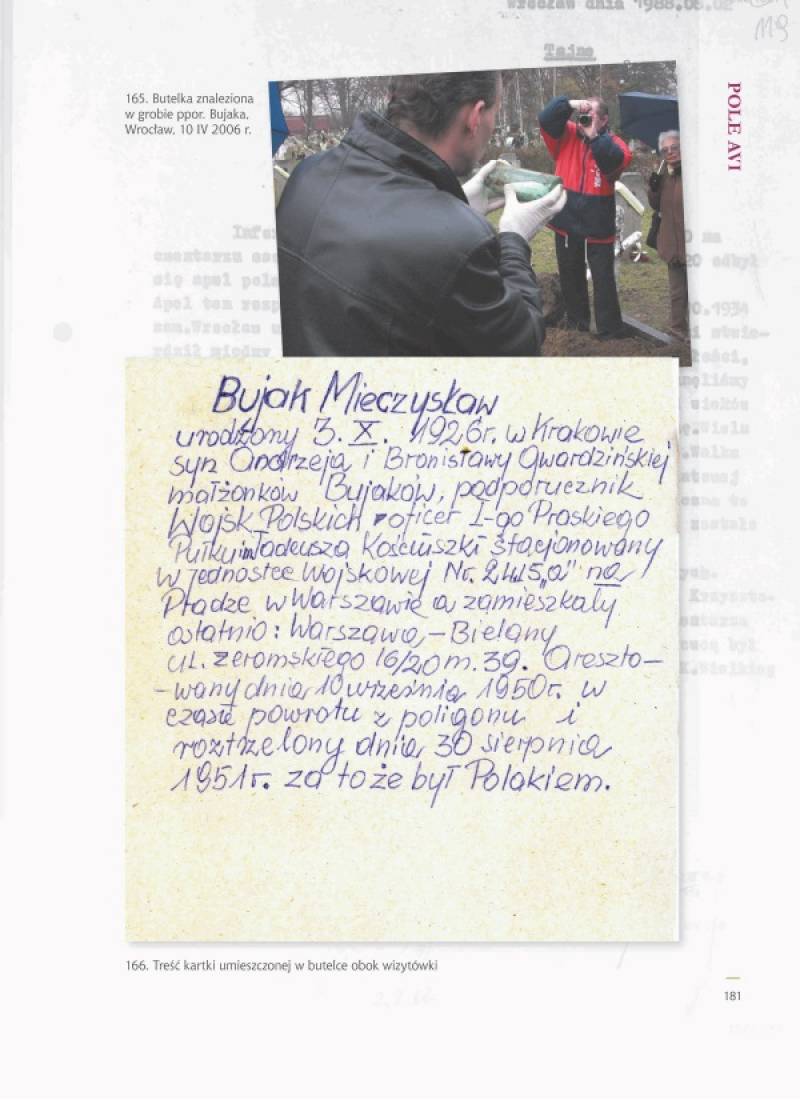 Wrocław dnia 1988.06.02
119
Tajne
165. Butelka znaleziona
w grobie ppor. Bujaka,
Wrocław, 10 IV 2006 r.
POLE AVI
Bujak Mieczysław
urodzony 3. X. 1926r. w Krakowie
syn Andrzeja i Bronisławy Gwardzińskiej
małżonków Bujaków, podporucznik
Wojsk Polskich oficer I-go Praskiego
Pułku im Tadeusza Kościuszki stacjonowany
w Jednostce Wojskowej Nr. "a" na
Pradze w Warszawie a zamieszkały
ostatnio: Warszawa – Bielany
ul. Żeromskiego 16/20 m. 39. Areszto–
–wany dnia 10 września 1950r. w
czasie powrotu z poligonu i
roztrzelony dnia 30 sierpnia
1951r. za to że był Polakiem.
166. Treść kartki umieszczonej w butelce obok wizytówki
181